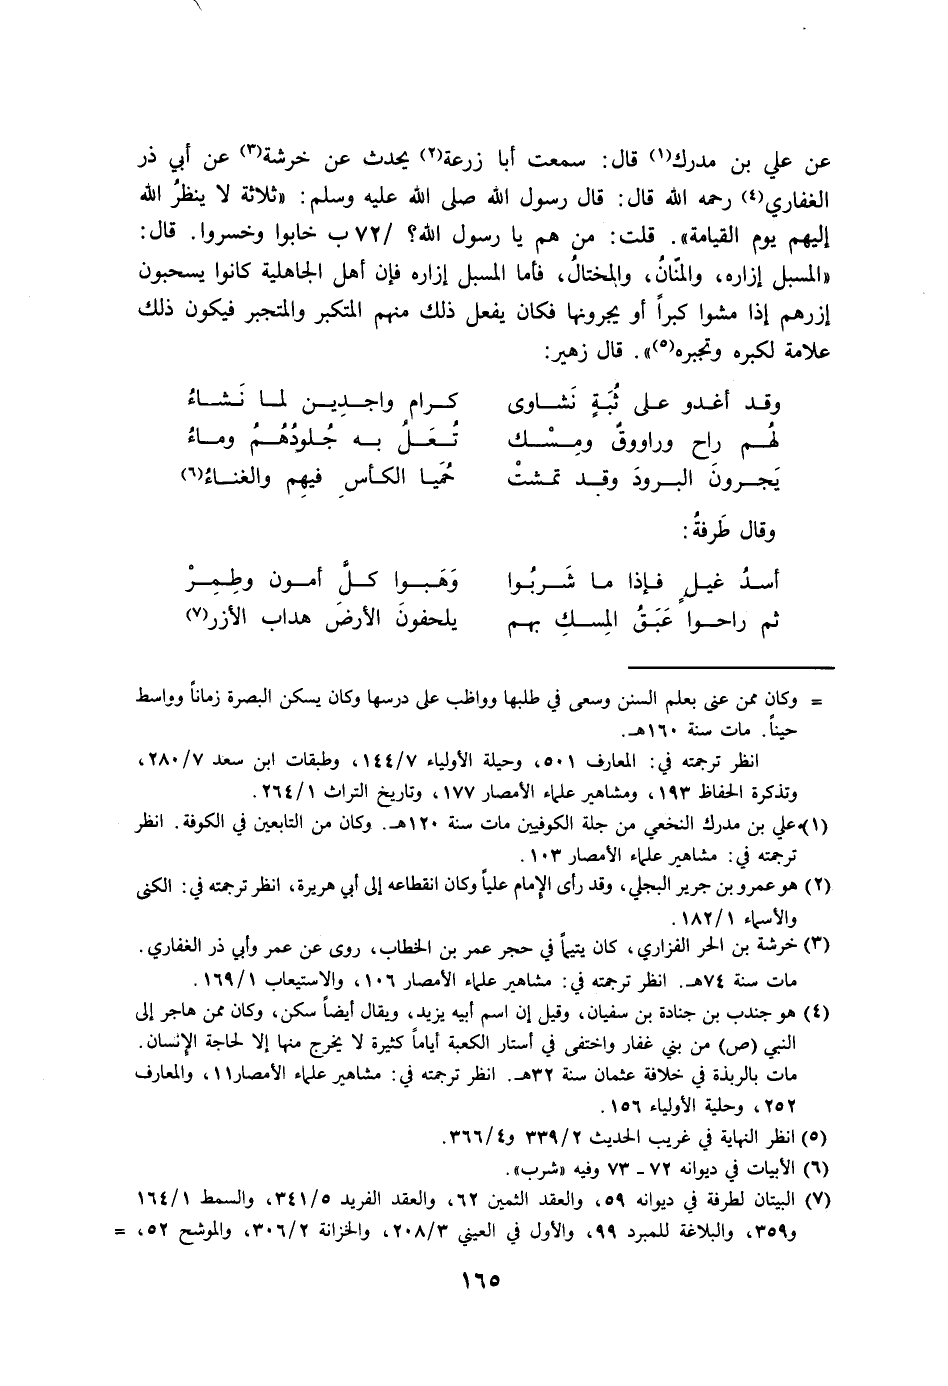 عن علي بن مدرك(١) قال: سمعت أبا زرعة(٢) يحدث عن خرشة(٣) عن أبي ذر
الغفاري(٤) رحمه الله قال: قال رسول الله صلى الله عليه وسلم: «ثلاثة لا ينظرُ الله
إليهم يوم القيامة». قلت: من هم يا رسول الله؟ /٧٢ ب خابوا وخسروا. قال:
«المسبل إزاره، والمنّانُ، والمختالُ، فأما المسبل إزاره فإن أهل الجاهلية كانوا يسحبون
إزرهم إذا مشوا كبراً أو يجرونها فكان يفعل ذلك منهم المتكبر والمتجبر فيكون ذلك
علامة لكبره وتجبره(٥)». قال زهير:
وقد أغدو على ثُبَةٍ نَشاوى كرامٍ واجدِين لما نَشاءُ
لهُم راح وراووقٌ ومِسْك تُعَلُ به جُلودُهُم وماءُ
يَجرونَ البرودَ وقد تمشتْ حُمَيا الكأسِ فيهِم والغناءُ(٦)
وقال طَرفةُ:
أسدُ غيلٍ فإذا ما شَرِبُوا وَهَبوا كلَّ أمون وطِمِرْ
ثم راحوا عَبَقُ المِسكِ بهم يلحفونَ الأرضَ هداب الأزر(٧)
= وكان ممن عنى بعلم السنن وسعى في طلبها وواظب على درسها وكان يسكن البصرة زماناً وواسط
حيناً. مات سنة ١٦٠هـ.
انظر ترجمته في: المعارف ٥٠١، وحيلة الأولياء ١٤٤/٧، وطبقات ابن سعد ٢٨٠/٧،
وتذكرة الحفاظ ١٩٣، ومشاهير علماء الأمصار ١٧٧، وتاريخ التراث ٢٦٤/١.
(١) علي بن مدرك النخعي من جلة الكوفيين مات سنة ١٢٠هـ. وكان من التابعين في الكوفة. انظر
ترجمته في: مشاهير علماء الأمصار ١٠٣.
(٢) هو عمرو بن جرير البجلي، وقد رأى الإمام علياً وكان انقطاعه إلى أبي هريرة، انظر ترجمته في: الكنى
والأسماء ١٨٢/١.
(٣) خرشة بن الحر الفزاري، كان يتيماً في حجر عمر بن الخطاب، روى عن عمر وأبي ذر الغفاري.
مات سنة ٧٤هـ. انظر ترجمته في: مشاهير علماء الأمصار ١٠٦، والاستيعاب ١٦٩/١.
(٤) هو جندب بن جنادة بن سفيان، وقيل إن اسم أبيه يزيد، ويقال أيضاً سكن، وكان ممن هاجر إلى
النبي (ص) من بني غفار واختفى في أستار الكعبة أياماً كثيرة لا يخرج منها إلا لحاجة الإنسان.
مات بالربذة في خلافة عثمان سنة ٣٢هـ. انظر ترجمته في: مشاهير علماء الأمصار١١، والمعارف
٢٥٢، وحلية الأولياء ١٥٦.
(٥) انظر النهاية في غريب الحديث ٣٣٩/٢ و٣٦٦/٤.
(٦) الأبيات في ديوانه ٧٢ - ٧٣ وفيه «شرب».
(٧) البيتان لطرفة في ديوانه ٥٩، والعقد الثمين ٦٢، والعقد الفريد ٣٤١/٥، والسمط ١٦٤/١
و٣٥٩، والبلاغة للمبرد ٩٩، والأول في العيني ٢٠٨/٣، والخزانة ٣٠٦/٢، والموشح ٥٢، =
١٦٥